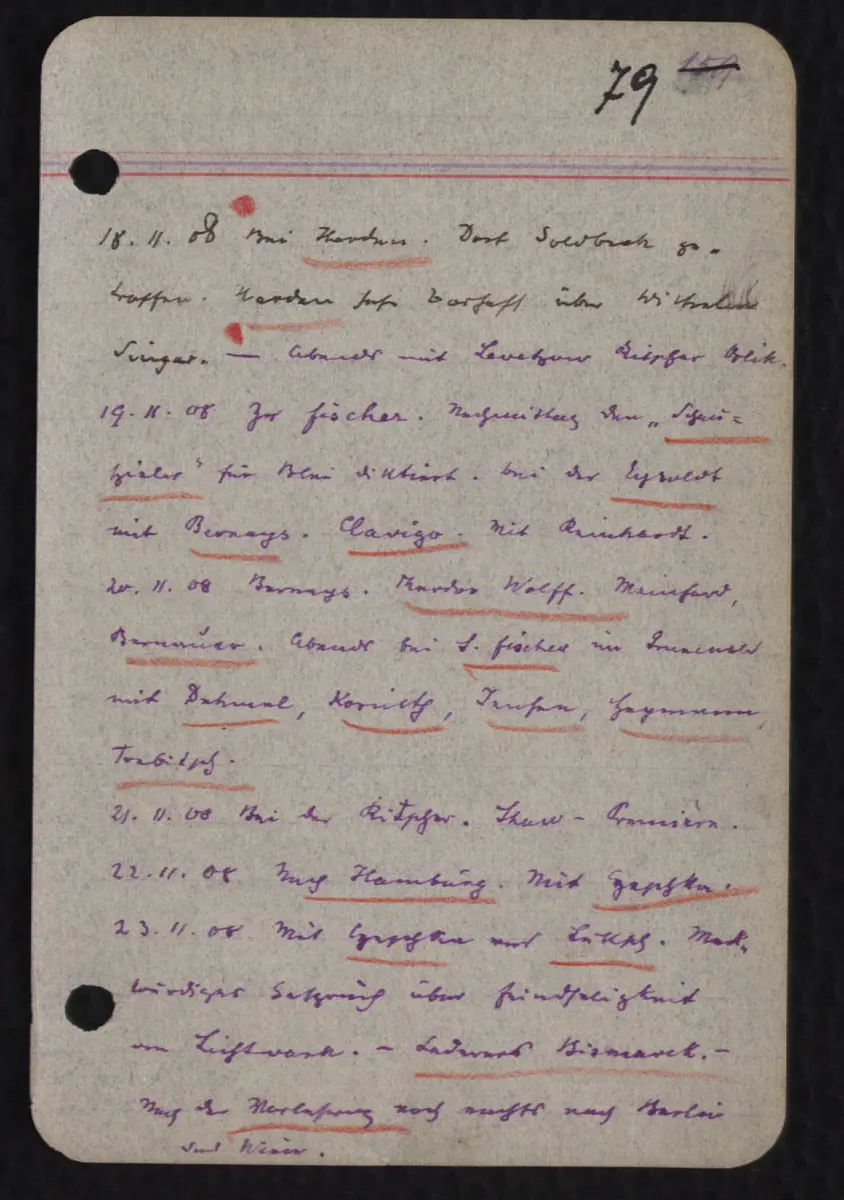 79 159
18. 11. 08 Bei Harden. Dort Goldbeck ge-
troffen. Harden sehr boshaft über Wilhelm
Singer. — Abends mit Levetzow Ritscher Orlik.
19. 11. 08 Zu Fischer. Nachmittag den „Schau=
spieler" für Blei diktiert. bei der Eysoldt
mit Bernays. Clavigo. Mit Reinhardt.
20. 11. 08 Bernays. Theodor Wolff. Meinhard,
Bernauer. Abends bei S. Fischer im Grunewald
mit Dehmel, Kornitz, Jensen, Heymann,
Trebitsch.
21. 11. 08 Bei der Ritscher. Shaw – Première.
22. 11. 08 Nach Hamburg. Mit
23. 11. 08 Mit und Merk-
würdiges Gespräch über Feindseligkeit
von Lichtwark. – Lederers Bismarck. –
Nach der Vorlesung noch nachts nach Berlin
und Wien.